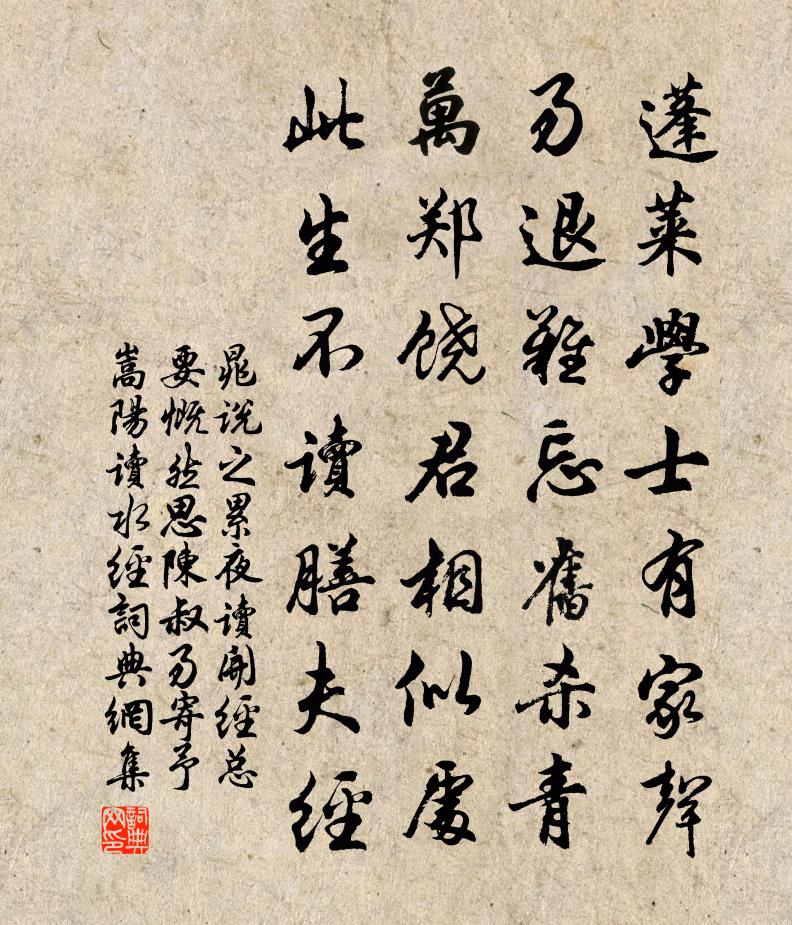 蓬萊學士有家聲
易退難忘舊杀青
萬郑饶君相似處
此生不讀膳夫經
晁说之累夜讀開經总
要慨然思陳叔易寄予
嵩陽讀水經詞典網集
詞典
网印